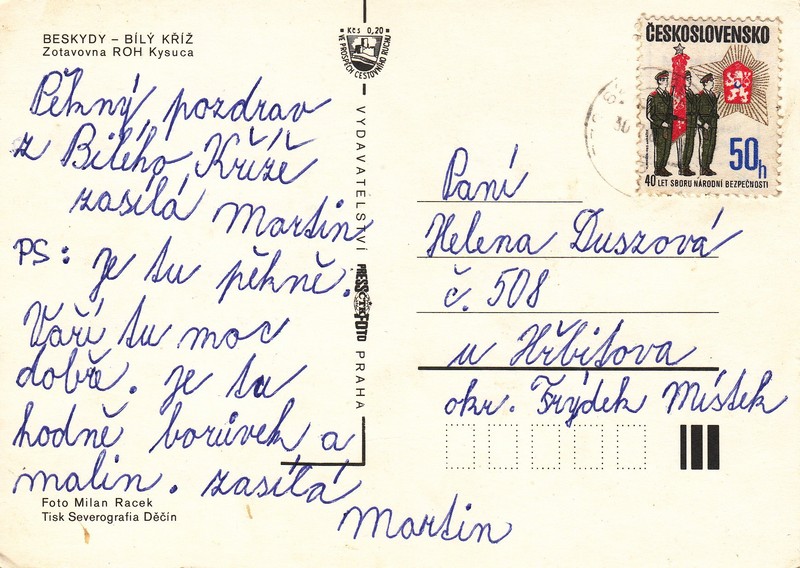 BESKYDY – BÍLÝ KŘÍŽ
Zotavovna ROH Kysuca
Pěkný pozdrav
z Bílého Kříže
zasílá Martin
PS: je tu pěkně.
Vaří tu moc
dobře. je tu
hodně borůvek a
malin. zasílá
Martin
Foto Milan Racek
Tisk Severografia Děčín
Kčs 0,20
VE PROSPĚCH CESTOVNÍHO RUCHU
VYDAVATELSTVÍ PRESSFOTO PRAHA
ČTK
ČESKOSLOVENSKO
50h
40 LET SBORU NÁRODNÍ BEZPEČNOSTI
Paní
Helena Duszová
č. 508
u Hřbitova
okr. Frýdek Místek